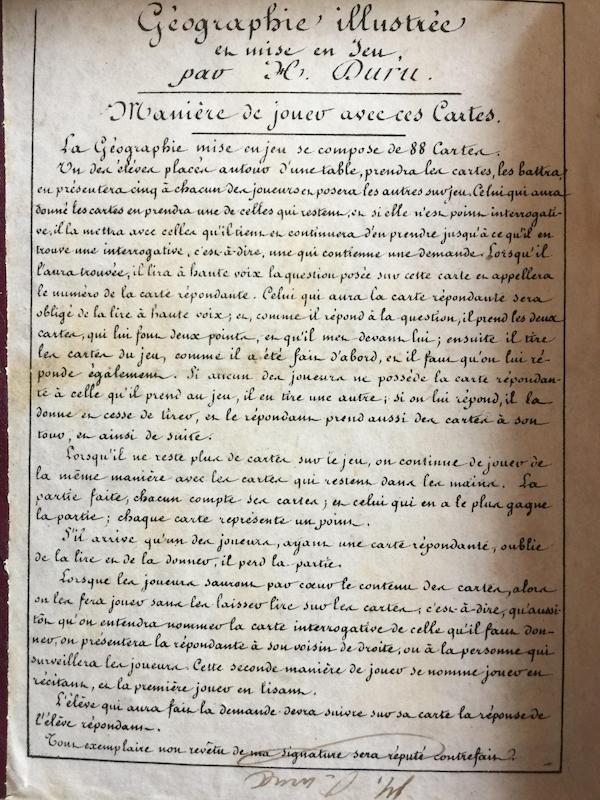 Géographie illustrée
et mise en Jeu,
par H. Duru.
Manière de jouer avec ces Cartes.
La Géographie mise en jeu se compose de 88 Cartes.
Un des élèves placés autour d'une table, prendra les cartes, les battra,
en présentera cinq à chacun des joueurs et posera les autres sur jeu. Celui qui aura
donné les cartes en prendra une de celles qui restent, et si elle n'est point interrogati-
ve, il la mettra avec celles qu'il tient et continuera d'en prendre jusqu'à ce qu'il en
trouve une interrogative, c'est-à-dire, une qui contienne une demande. Lorsqu'il
l'aura trouvée, il lira à haute voix la question posée sur cette carte et appellera
le numéro de la carte répondante. Celui qui aura la carte répondante sera
obligé de la lire à haute voix; et, comme il répond à la question, il prend les deux
cartes, qui lui font deux points, et qu'il met devant lui; ensuite il tire
les cartes du jeu, comme il a été fait d'abord, et il faut qu'on lui ré-
ponde également. Si aucun des joueurs ne possède la carte répondan-
te à celle qu'il prend au jeu, il en tire une autre; si on lui répond, il la
donne et cesse de tirer, et le répondant prend aussi des cartes à son
tour, et ainsi de suite.
Lorsqu'il ne reste plus de cartes sur le jeu, on continue de jouer de
la même manière avec les cartes qui restent dans les mains. La
partie faite, chacun compte ses cartes; et celui qui en a le plus gagne
la partie; chaque carte représente un point.
S'il arrive qu'un des joueurs, ayant une carte répondante, oublie
de la lire et de la donner, il perd la partie.
Lorsque les joueurs sauront par cœur le contenu des cartes, alors
on les fera jouer sans les laisser lire sur les cartes; c'est-à-dire, qu'aussi-
tôt qu'on entendra nommer la carte interrogative de celle qu'il faut don-
ner, on présentera la répondante à son voisin de droite, ou à la personne qui
surveillera les joueurs. Cette seconde manière de jouer se nomme jouer en
récitant, et la première jouer en lisant.
L'élève qui aura fait la demande devra suivre sur sa carte la réponse de
l'élève répondant.
Tout exemplaire non revêtu de ma signature sera réputé contrefait.